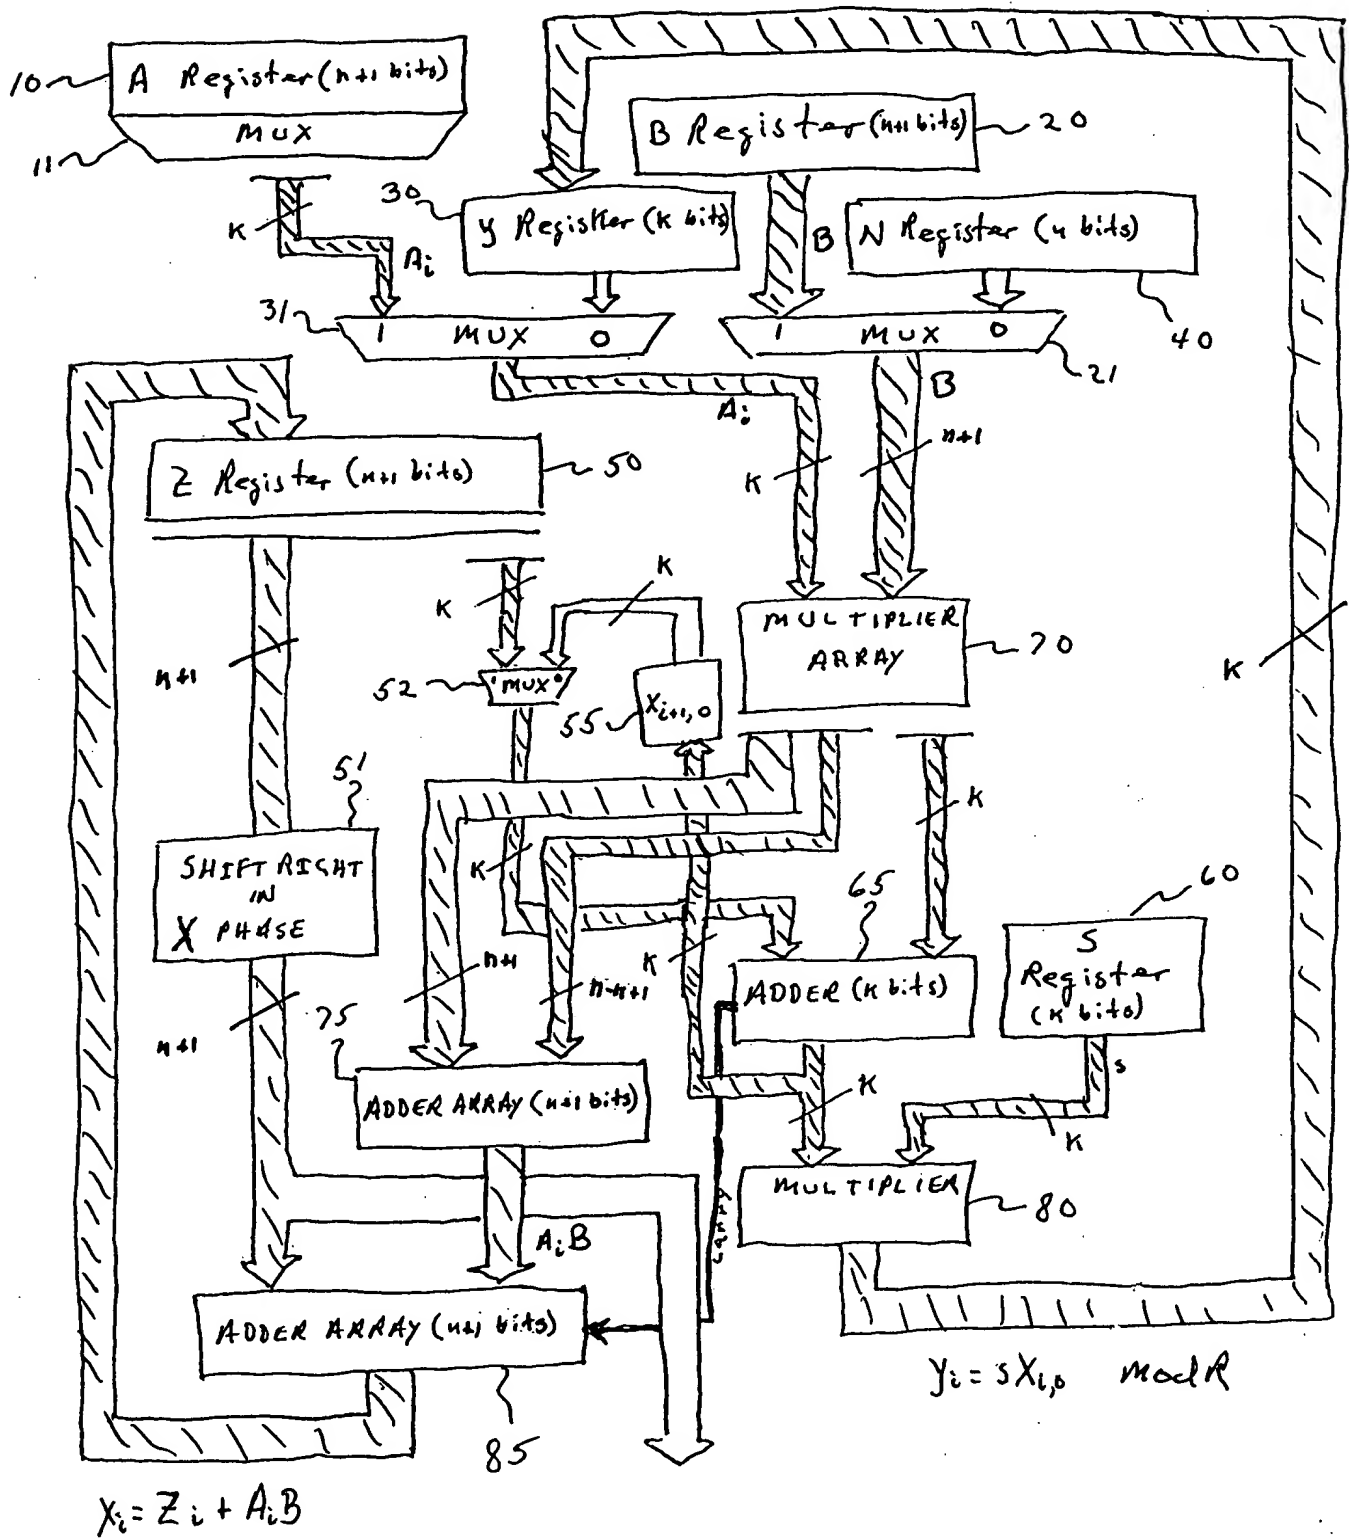 10
A Register (n+1 bits)
11
MUX
B Register (n+1 bits)
20
30
y Register (K bits)
B
N Register (n bits)
40
K
Ai
31
1 MUX 0
1 MUX 0
21
Ai
B
K
n+1
Z Register (n+1 bits)
50
K
K
K
n+1
52
1 MUX 0
55
Xi+1,0
MULTIPLIER
ARRAY
70
51
K
SHIFT RIGHT
IN
X PHASE
K
65
60
n+1
n+1
K
ADDER (K bits)
S
Register
(K bits)
75
n+1
ADDER ARRAY (n+1 bits)
K
s
K
MULTIPLIER
80
carry
AiB
ADDER ARRAY (n+1 bits)
85
yi = sXi,0 mod R
Xi = Zi + AiB